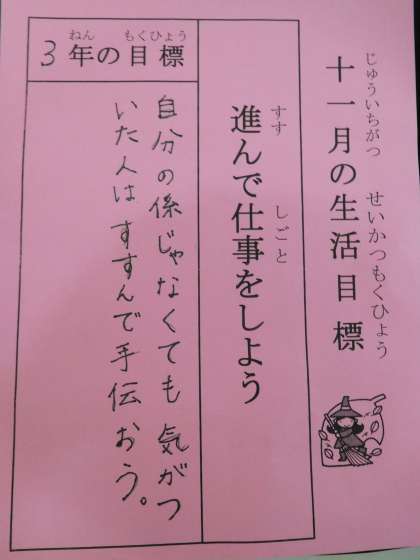 十一月の生活目標
じゅういちがつ せいかつもくひょう
進んで仕事をしよう
すす しごと
3年の目標
ねん もくひょう
自分の係じゃなくても気がつ
いた人はすすんで手伝おう。